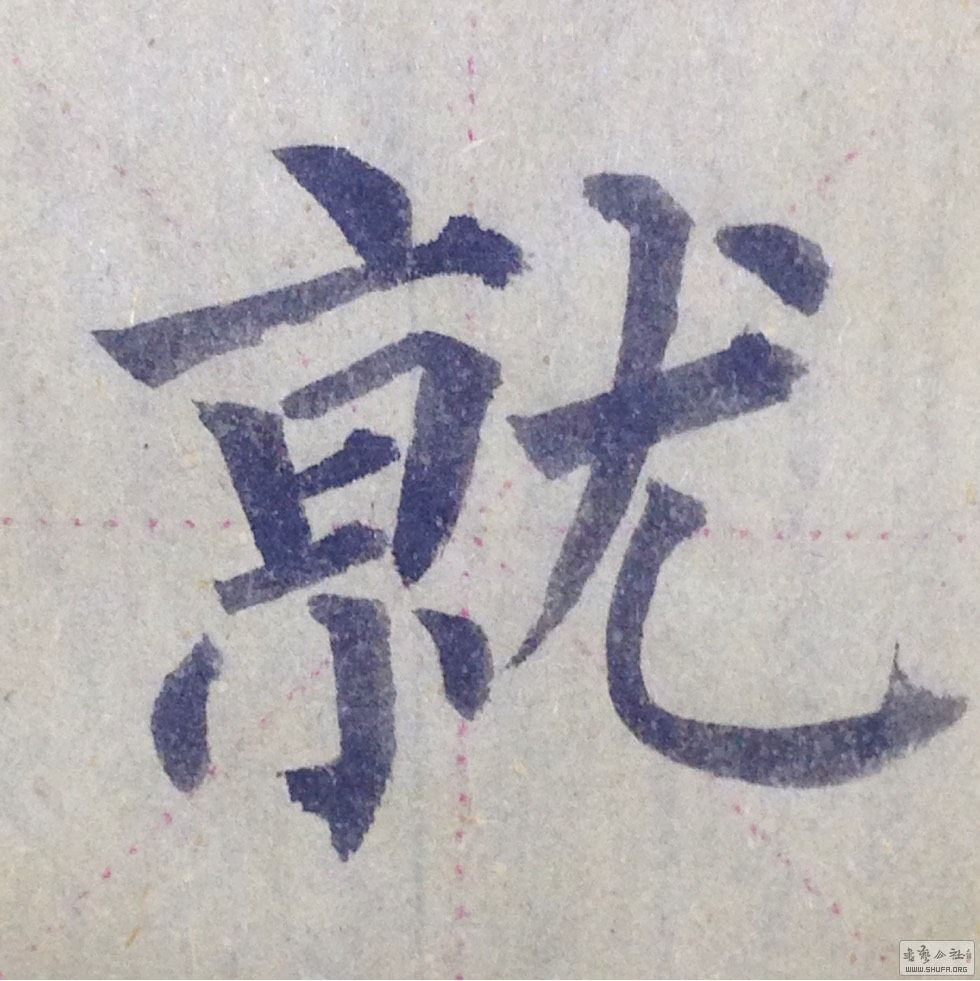 就
書藝公社
WWW.SHUFA.ORG